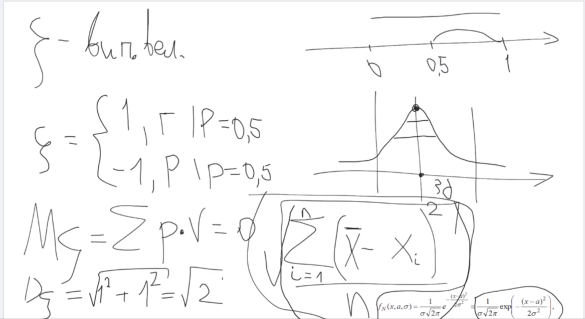 ξ – вип. вел.
0 0,5 1
ξ = { 1, Г | P = 0,5
-1, Р | p = 0,5
3σ
Mξ = Σ p·V = 0
Dξ = √1² + 1² = √2
√ Σ i=1 n (x̄ - xᵢ)² / n
f_N(x,a,σ) = 1/(σ√2π) e^(-(x-a)²/2σ²) = 1/(σ√2π) exp(-(x-a)²/2σ²).